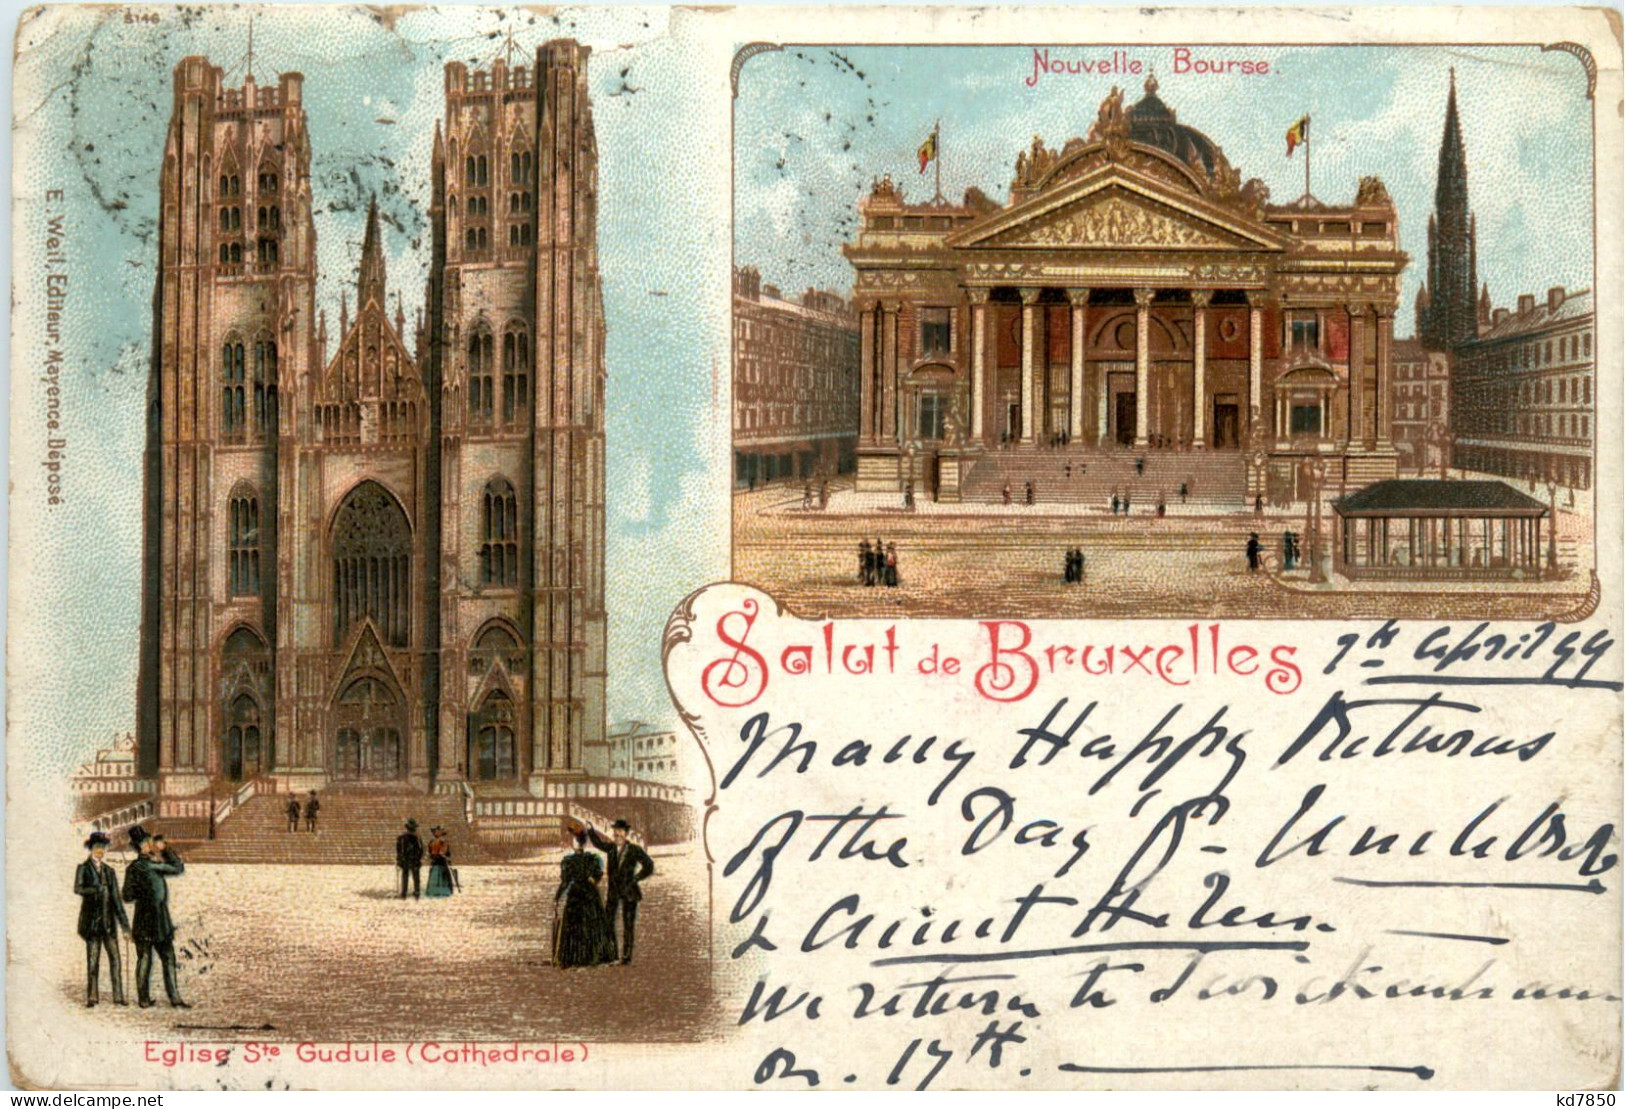 8146
Nouvelle Bourse.
E. Weil, Editeur, Mayence. Déposé.
Salut de Bruxelles
7th April 99
Many Happy Returns
of the Day fr Uncle
& Aunt Helen.
We return to Twickenham
on. 17th.
Eglise Ste Gudule (Cathedrale)
delcampe.net
kd7850